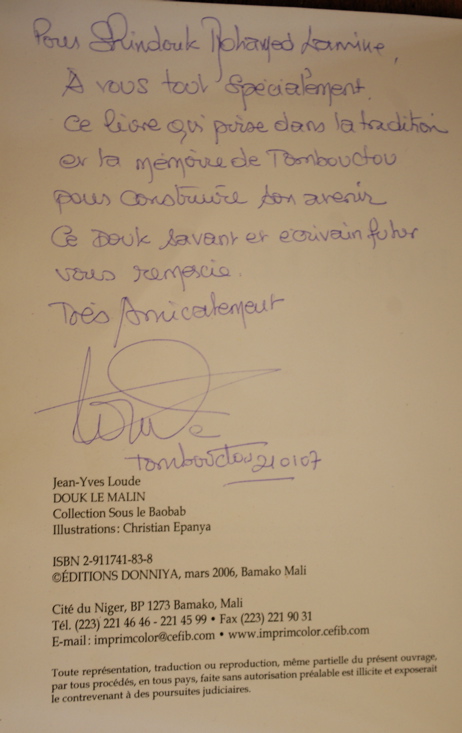 Pour Shindouk Mohamed Lamine,
À vous tout spécialement.
Ce livre qui puise dans la tradition
et la mémoire de Tombouctou
pour construire son avenir
Ce Douk savant et écrivain futur
vous remercie.
Très Amicalement
Loude
Tombouctou 210107
Jean-Yves Loude
DOUK LE MALIN
Collection Sous le Baobab
Illustrations : Christian Epanya
ISBN 2-911741-83-8
©ÉDITIONS DONNIYA, mars 2006, Bamako Mali
Cité du Niger, BP 1273 Bamako, Mali
Tél. (223) 221 46 46 - 221 45 99 • Fax (223) 221 90 31
E-mail : imprimcolor@cefib.com • www.imprimcolor.cefib.com
Toute représentation, traduction ou reproduction, même partielle du présent ouvrage,
par tous procédés, en tous pays, faite sans autorisation préalable est illicite et exposerait
le contrevenant à des poursuites judiciaires.